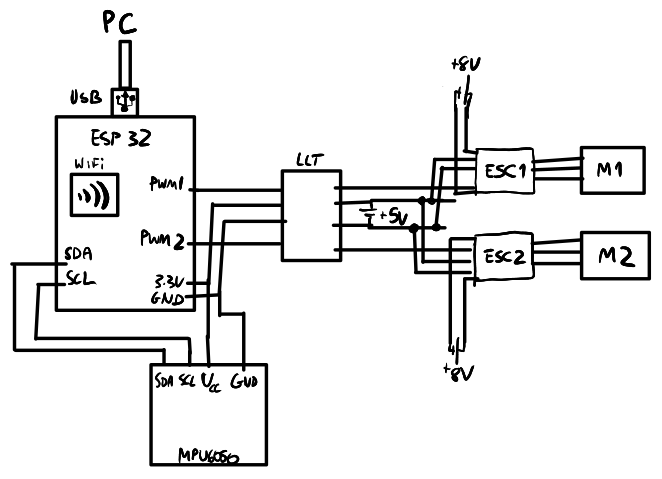 PC
USB
ESP 32
WiFi
PWM1
PWM 2
SDA
SCL
3.3V
GND
LLT
+5V
+8V
ESC1
M1
ESC2
M2
+8V
SDA SCL Vcc GND
MPU6050